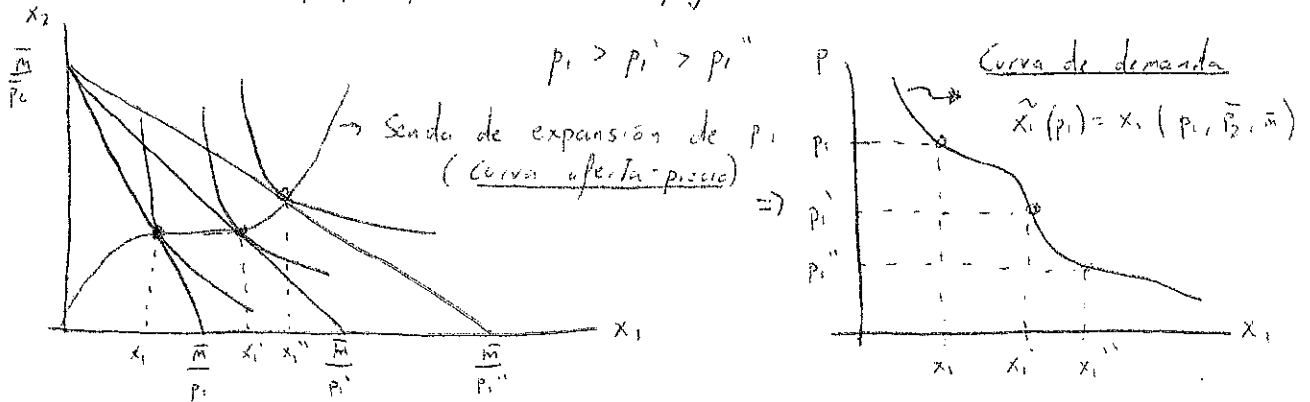 x₂
m̄/p̄₂
p₁ > p₁' > p₁''
→ Senda de expansión de p₁
(Curva oferta-precio)
x₁ m̄/p₁ x₁' x₁'' m̄/p₁' m̄/p₁''
x₁
⇒
p
Curva de demanda
x̃₁(p₁) = x₁(p₁, p̄₂, m̄)
p₁
p₁'
p₁''
x₁ x₁' x₁''
x₁